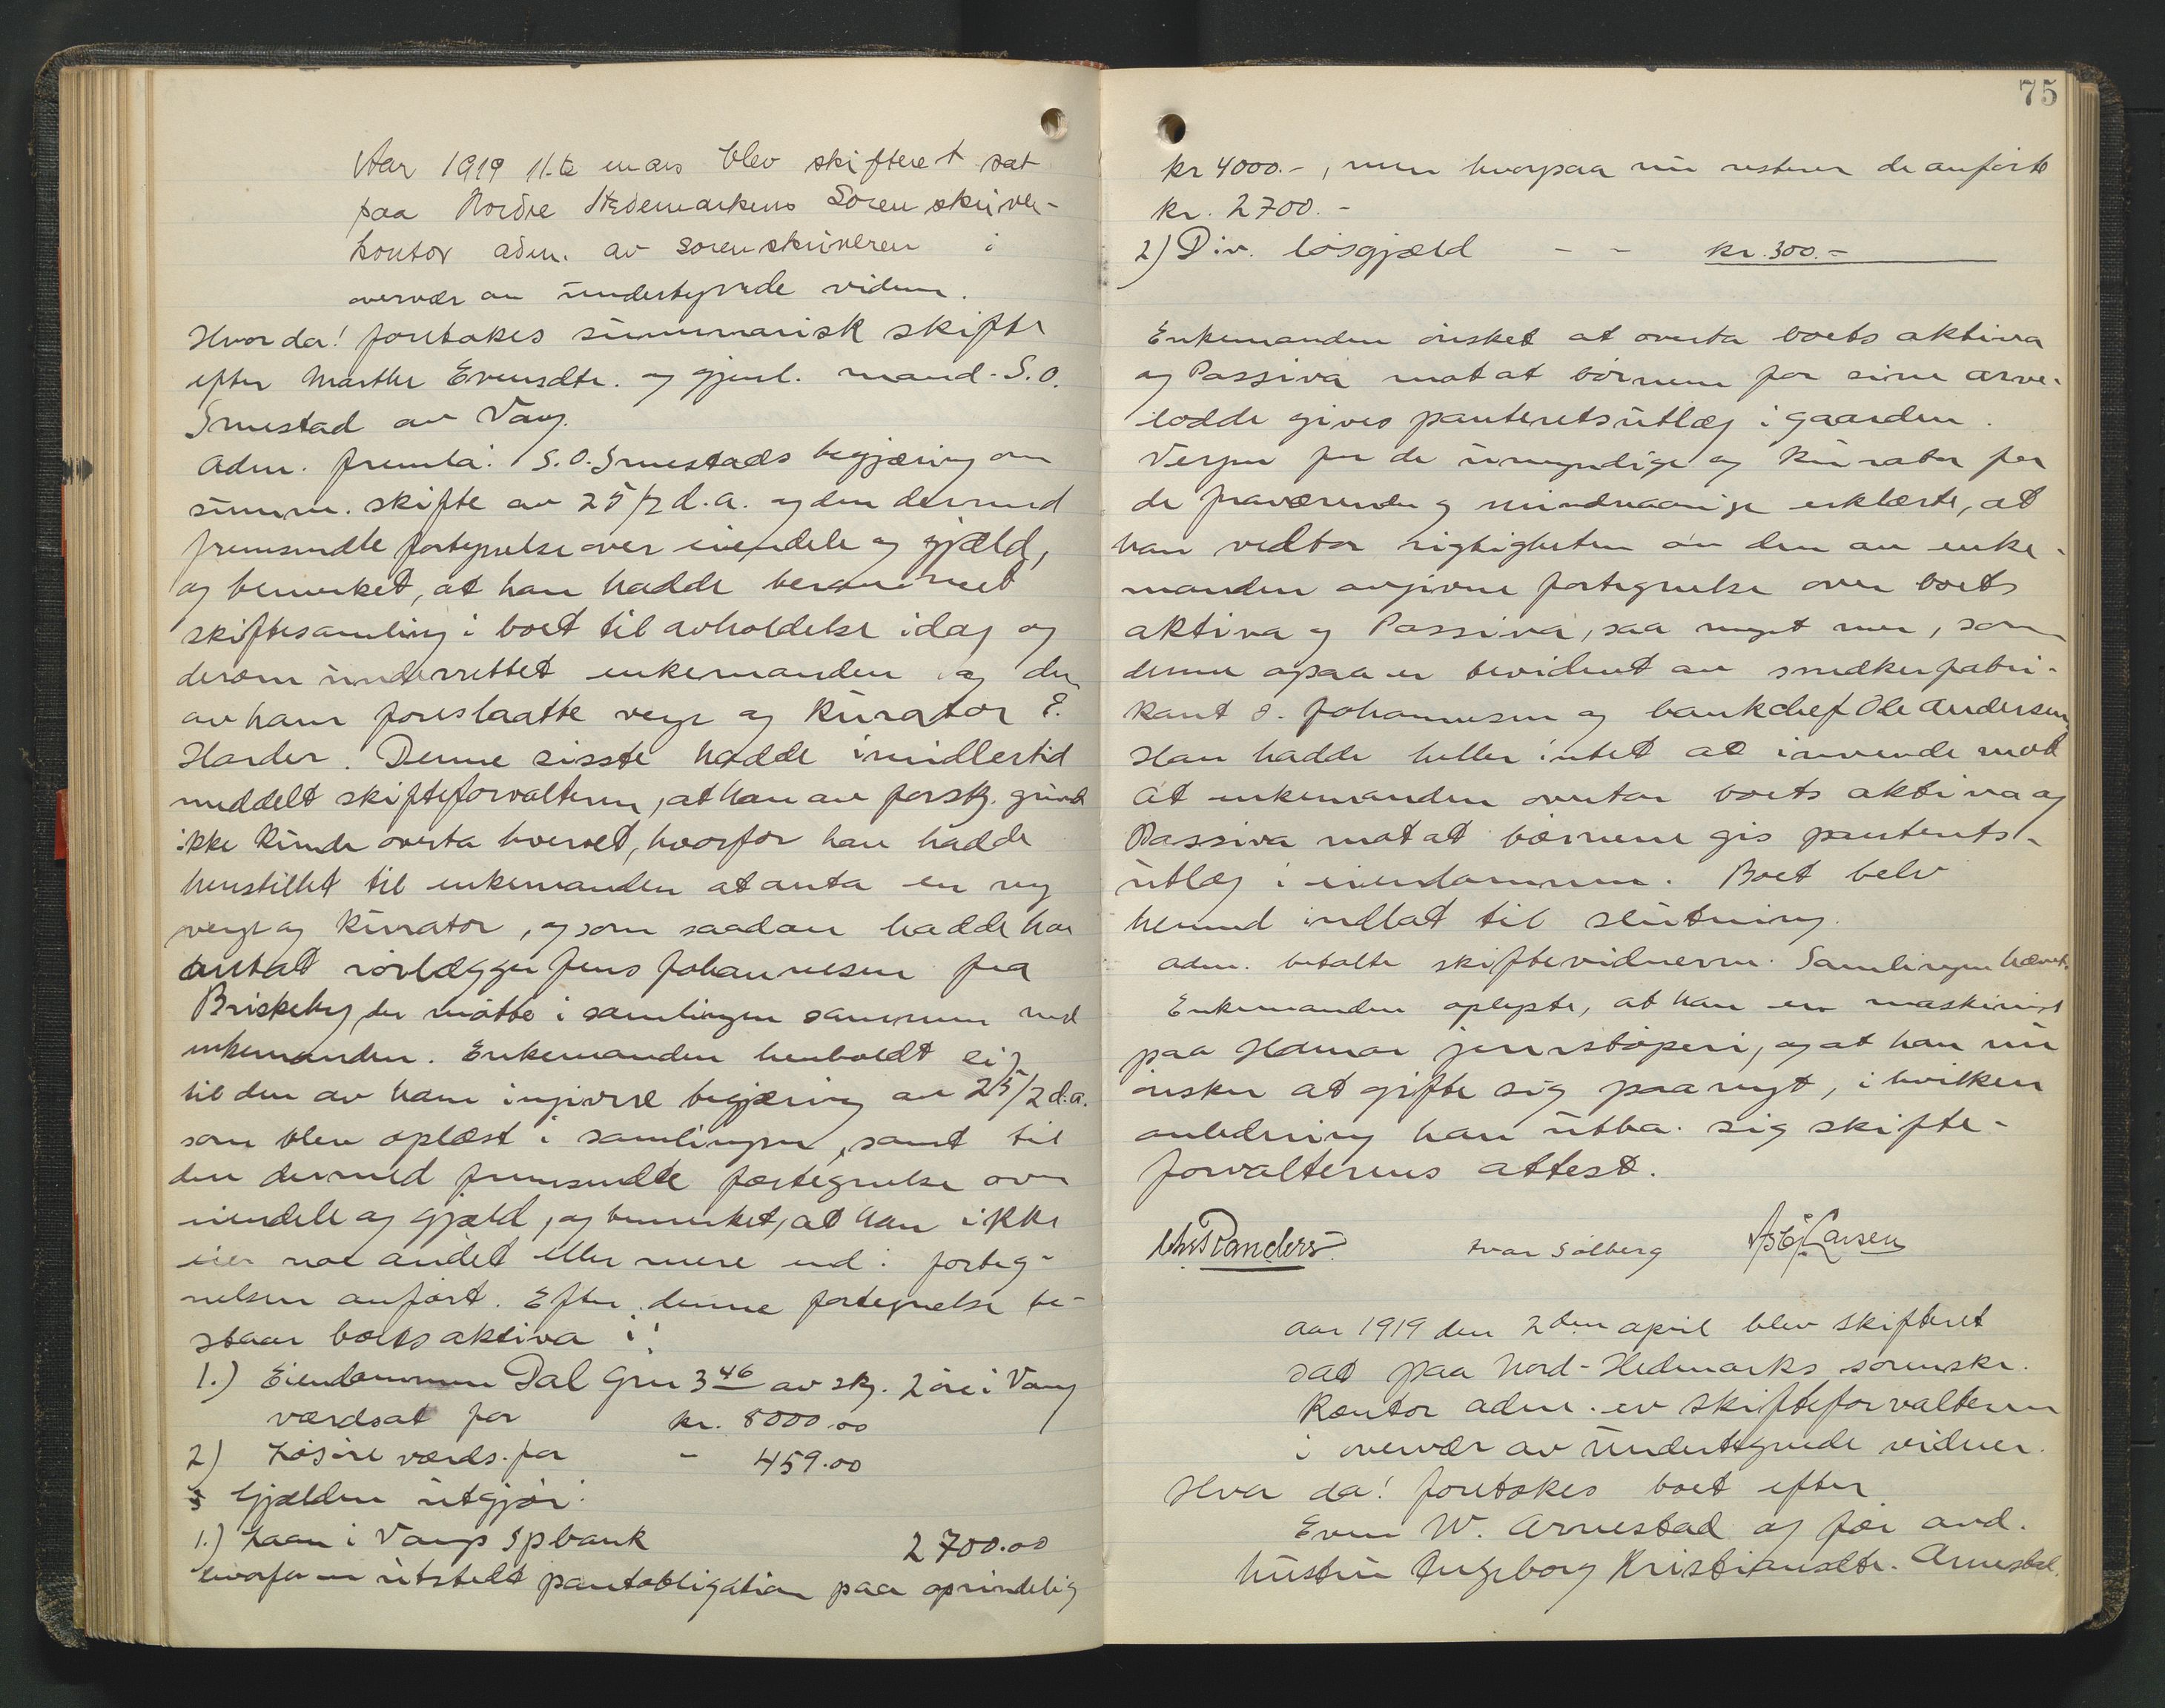 Aar 1919 11.te mars blev skifteret sat
paa Nordre Hedemarkens Sorenskriver-
kontor adm. av sorenskriveren i
overvær av undertegnede vidner.
Hvor da! foretokes summarisk skifte
efter Marthe Evensdtr. og gjenl. mand S.O.
Smestad av Vang.
Adm. fremla: S.O. Smestads begjæring om
summ. skifte av 25/2 d.a. og den dermed
fremsendte fortegnelse over eiendele og gjæld,
og bemerket, at han hadde berammet
skiftesamling i boet til avholdelse idag og
derom underrettet enkemanden og den
av ham foreslaatte verge og kurator E.
Harder. Denne sisste hadde imidlertid
meddelt skifteforvalteren, at han av forskj. grunde
ikke kunde overta hvervet, hvorfor han hadde
henstillet til enkemanden at anta en ny
verge og kurator, og som saadan hadde han
antat rørlægger Jens Johannesen fra
Briskeby, der møtte i samlingen sammen med
enkemanden. Enkemanden henholdt sig
til den av ham ingivne begjæring av 25/2 d.a.
som blev oplæst i samlingen, samt til
den dermed fremsendte fortegnelse over
eiendele og gjæld, og bemerket, at han ikke
eier noe andet eller mere end i forteg-
nelsen anført. Efter denne fortegnelse be-
staar boets aktiva i:
1.) Eiendommen Dal Gnr 3 46 av skj. 2 øre i Vang
værdsat for kr. 8000.00
2) Løsøre værds. for - 459.00
Gjælden utgjør:
1.) Laan i Vangs Spbank 2700.00
hvorfor er utstedt pantobligation paa oprindelig
75
kr 4000.-, men hvorpaa nu resterer de anførte
kr. 2700.-
2) Div. løsgjæld - - kr. 300.-
Enkemanden ønsket at overta boets aktiva
og Passiva mot at børnene for sine arve-
lodde gives panteretsutlæg i gaarden.
Vergen for de umyndige og kurator for
de fraværende og mindreaarige erklærte, at
han vedtar rigtigheten av den av enke-
manden avgivne fortegnelse over boets
aktiva og Passiva, saa meget mer, som
denne ogsaa er bevidnet av snedkerfabri-
kant J. Johannesen og bankchef Ole Andersen
Han hadde heller intet at invende mod
at enkemanden overtar boets aktiva og
Passiva mot at børnene gis panterets-
utlæg i eiendommen. Boet belv
hermed indlat til slutning.
Adm. betalte skiftevidnerne. Samlingen hævet.
Enkemanden oplyste, at han er maskinist
paa Hamar jernstøperi, og at han nu
ønsker at gifte sig paanyt, i hvilken
anledning han utba sig skifte-
forvalterens attest.
Chr Randers Ivar Solberg Larsen
Aar 1919 den 2den april blev skifteret
sat paa Nord-Hedmarks sorenskr.
kontor adm. av skifteforvalteren
i overvær av undertegnede vidner.
Hvor da! foretokes boet efter
Even W. Arnestad og før avd.
hustru Ingeborg Kristiansdtr. Arnestad.